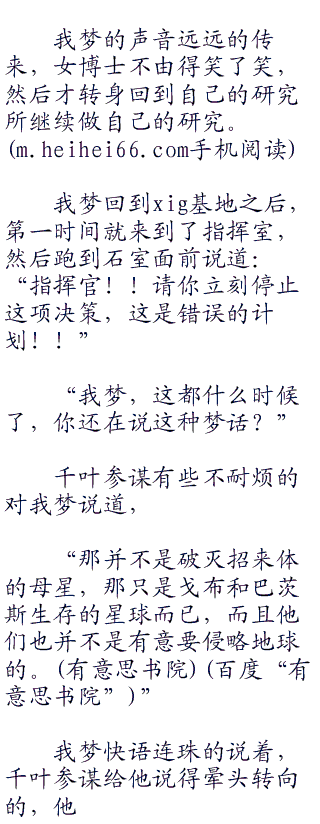 我梦的声音远远的传
来，女博士不由得笑了笑，
然后才转身回到自己的研究
所继续做自己的研究。
(m.heihei66.com手机阅读)
我梦回到xig基地之后，
第一时间就来到了指挥室，
然后跑到石室面前说道：
“指挥官！！请你立刻停止
这项决策，这是错误的计
划！！”
“我梦，这都什么时候
了，你还在说这种梦话？”
千叶参谋有些不耐烦的
对我梦说道，
“那并不是破灭招来体
的母星，那只是戈布和巴茨
斯生存的星球而已，而且他
们也并不是有意要侵略地球
的。(有意思书院)(百度“有
意思书院”)”
我梦快语连珠的说着，
千叶参谋给他说得晕头转向
的，他